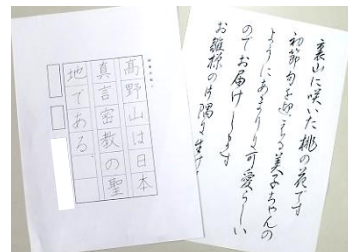 高野山は日本
真言密教の聖
地である
裏山に咲いた桃の花です
初節句を迎える美子ちゃんの
ようにあまりに可愛らしい
のでお届けします
お雛様の片隅に生け